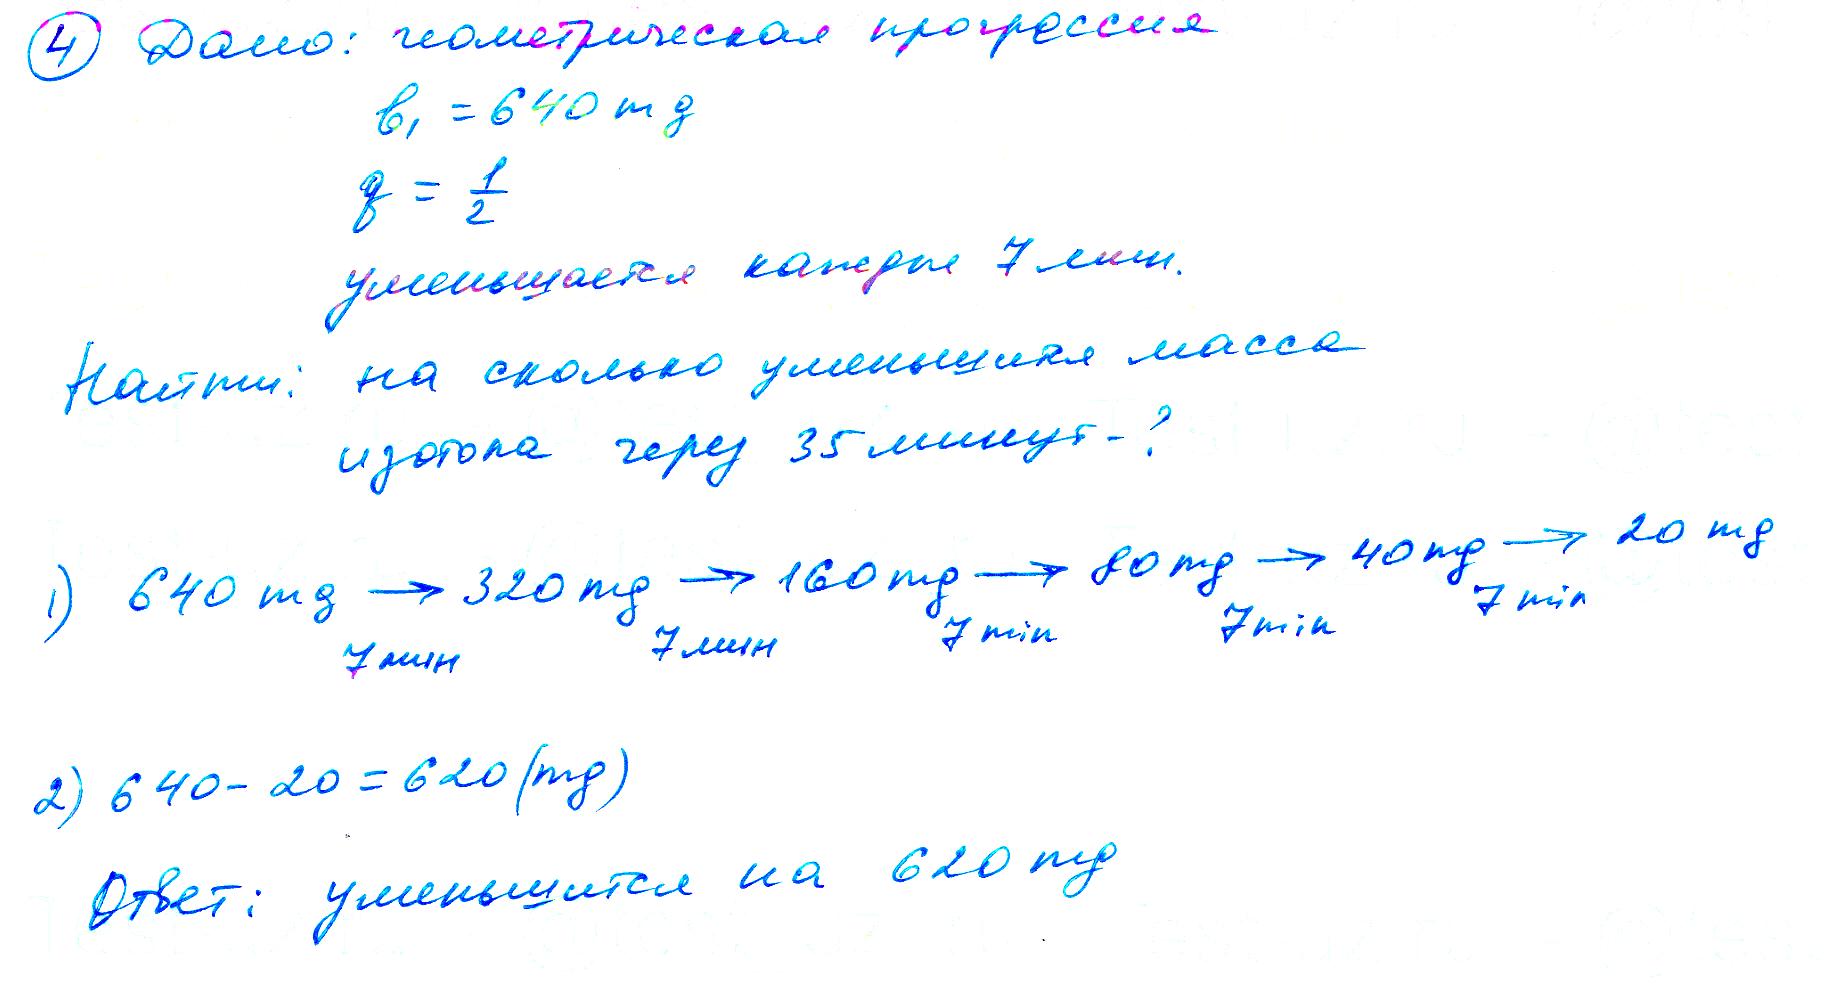 ④ Дано: геометрическая прогрессия
b₁ = 640 mg
q = 1/2
уменьшается каждые 7 мин.
Найти: на сколько уменьшится масса
изотопа через 35 минут - ?
1) 640 mg → 320 mg → 160 mg → 80 mg → 40 mg → 20 mg
7 мин 7 мин 7 min 7 min 7 min
2) 640 - 20 = 620 (mg)
Ответ: уменьшится на 620 mg